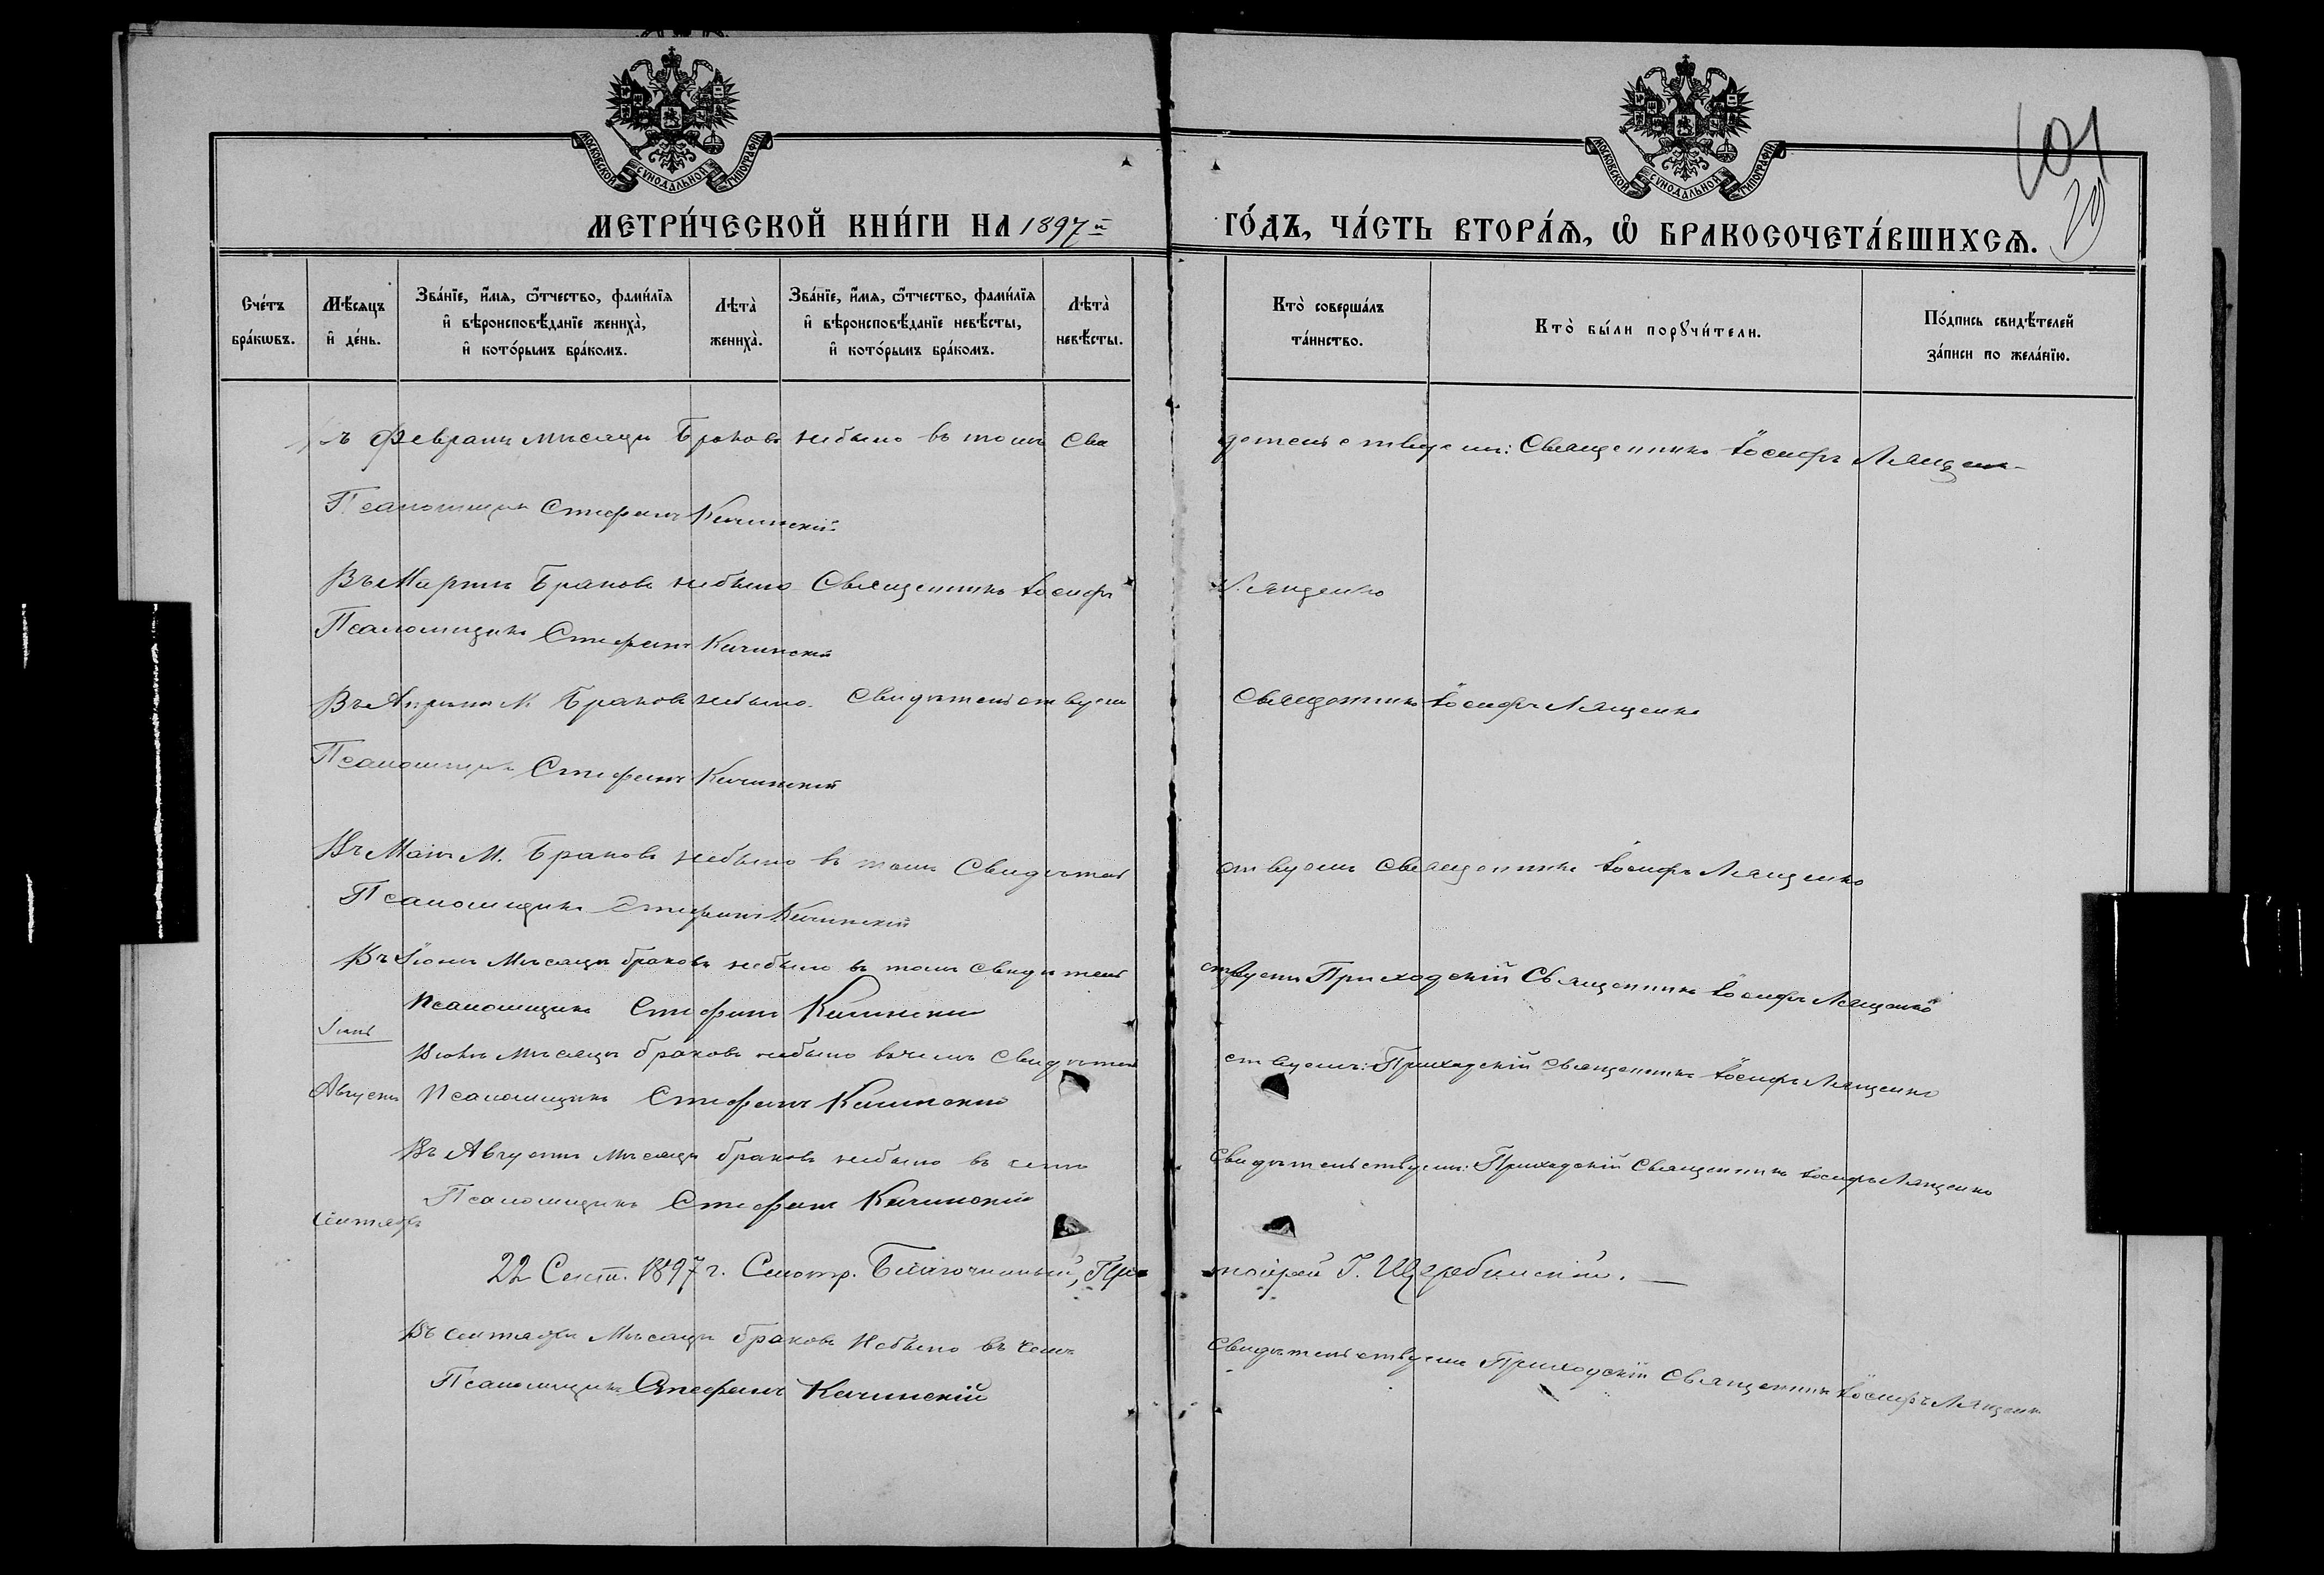 МОСКОВСКОЙ СѴНОДАЛЬНОЙ ТИПОГРАФІИ
МОСКОВСКОЙ СѴНОДАЛЬНОЙ ТИПОГРАФІИ
101
МЕТРИ́ЧЕСКОЙ КНИ́ГИ НА 1897й ГО́ДЪ, ЧА́СТЬ ВТОРА́Ѧ, Ѡ҆ БРАКОСОЧЕТА́ВШИХСѦ.
Сче́тъ бра́кѡвъ.
Мѣ́сѧцъ и҆ де́нь.
Зва́нїе, и҆́мѧ, ѻ҆́тчество, фами́лїѧ и҆ вѣроисповѣ́данїе жениха̀, и҆ кото́рымъ бра́комъ.
Лѣта̀ жениха̀.
Зва́нїе, и҆́мѧ, ѻ҆́тчество, фами́лїѧ и҆ вѣроисповѣ́данїе невѣ́сты, и҆ кото́рымъ бра́комъ.
Лѣта̀ невѣ́сты.
Кто̀ соверша́лъ та́инство.
Кто̀ бы́ли порꙋчи́тели.
По́дпись свидѣ́телей за́писи по жела́нїю.
Въ Февралѣ мѣсяцѣ Браковъ небыло въ томъ Сви дѣтельствуемъ: Священникъ Іосифъ Лященко
Псаломщикъ Стефанъ Качинскій
Въ Мартѣ Браковъ небыло Священникъ Іосифъ Лященко
Псаломщикъ Стефанъ Качинскій
Въ Апрѣлѣ М. Браковъ небыло. Свидѣтельствуемъ Священникъ Іосифъ Лященко
Псаломщикъ Стефанъ Качинскій
Въ Маѣ М. Браковъ небыло въ томъ Свидѣтель ствуемъ Священникъ Іосифъ Лященко
Псаломщикъ Стефанъ Качинскій
Въ Іюнѣ Мѣсяцѣ браковъ небыло въ томъ свидѣтель ствуемъ Приходскій Священникъ Іосифъ Лященко
Псаломщикъ Стефанъ Качинскій
Іюль
Іюлѣ мѣсяцѣ браковъ небыло въ чемъ свидѣтель ствуемъ: Приходскій Священникъ Іосифъ Лященко
Августъ Псаломщикъ Стефанъ Качинскій
Въ Августѣ мѣсяцѣ браковъ небыло въ чемъ свидѣтельствуемъ: Приходскій Священникъ Іосифъ Лященко
Псаломщикъ Стефанъ Качинскій
Сентябрь
22 Сент. 1897 г. Смотр. Благочинный, Про=тоіерей І. Щербинскій.
Въ сентябрѣ Мѣсяцѣ браковъ Небыло въ чемъ свидѣтельствуемъ Приходскій Священникъ Іосифъ Лященко
Псаломщикъ Стефанъ Качинскій